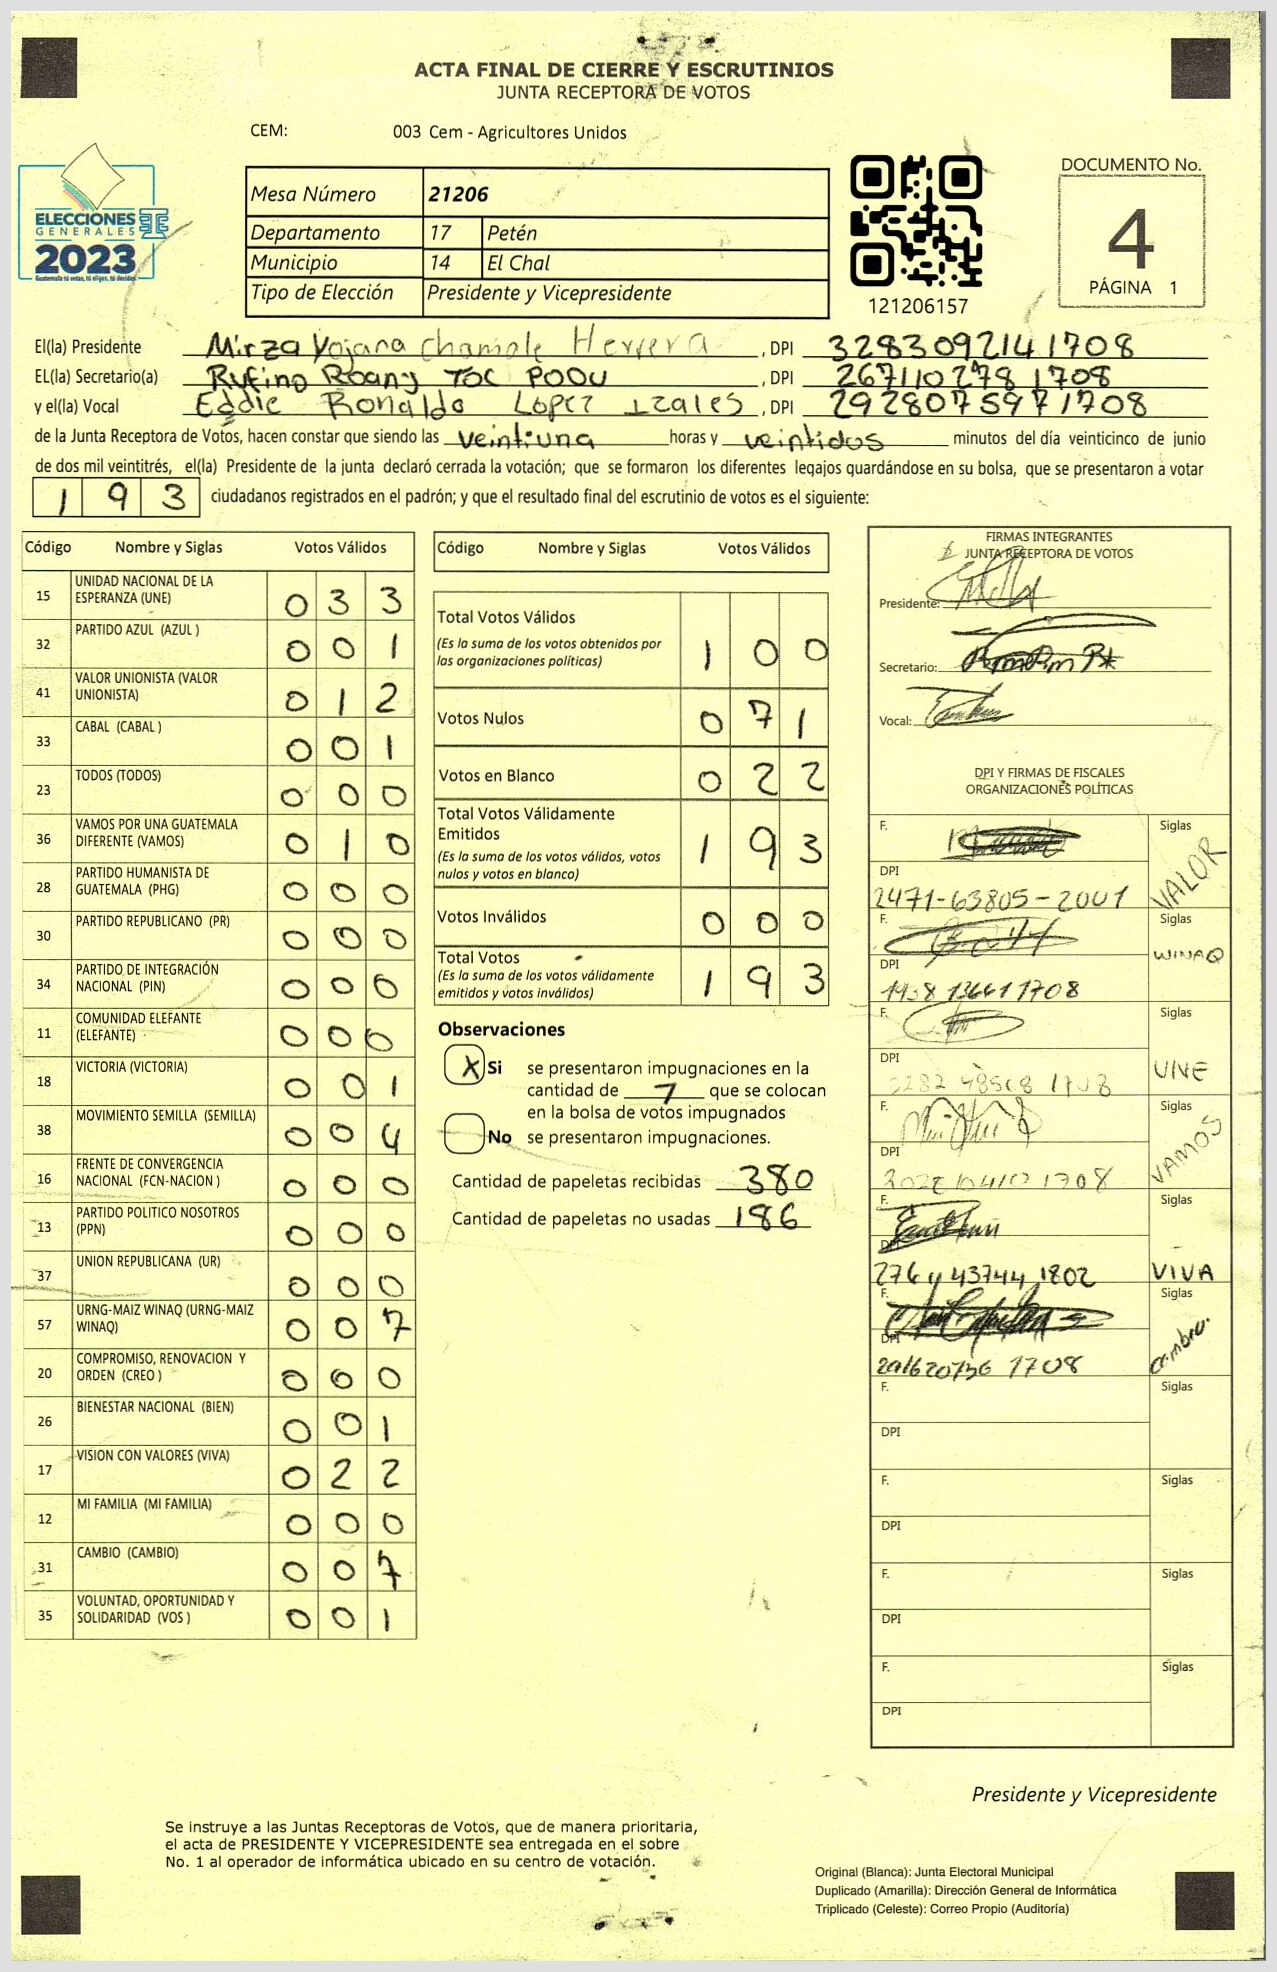 ACTA FINAL DE CIERRE Y ESCRUTINIOS
JUNTA RECEPTORA DE VOTOS
CEM: 003 Cem - Agricultores Unidos
ELECCIONES
GENERALES
2023
Guatemala tú votas, tú eliges, tú decides
Mesa Número 21206
Departamento 17 Petén
Municipio 14 El Chal
Tipo de Elección Presidente y Vicepresidente
121206157
DOCUMENTO No.
4
PÁGINA 1
El(la) Presidente Mirza Yojana Chamale Herrera, DPI 3283092141708
EL(la) Secretario(a) Rufino Roany TOC POOU, DPI 267110278 1708
y el(la) Vocal Eddie Ronaldo Lopez Izales, DPI 2928075971708
de la Junta Receptora de Votos, hacen constar que siendo las veintiuna horas y veintidos minutos del día veinticinco de junio
de dos mil veintitrés, el(la) Presidente de la junta declaró cerrada la votación; que se formaron los diferentes legajos quardándose en su bolsa, que se presentaron a votar
193 ciudadanos registrados en el padrón; y que el resultado final del escrutinio de votos es el siguiente:
Código Nombre y Siglas Votos Válidos
15 UNIDAD NACIONAL DE LA ESPERANZA (UNE) 0 3 3
32 PARTIDO AZUL (AZUL ) 0 0 1
41 VALOR UNIONISTA (VALOR UNIONISTA) 0 1 2
33 CABAL (CABAL ) 0 0 1
23 TODOS (TODOS) 0 0 0
36 VAMOS POR UNA GUATEMALA DIFERENTE (VAMOS) 0 1 0
28 PARTIDO HUMANISTA DE GUATEMALA (PHG) 0 0 0
30 PARTIDO REPUBLICANO (PR) 0 0 0
34 PARTIDO DE INTEGRACIÓN NACIONAL (PIN) 0 0 0
11 COMUNIDAD ELEFANTE (ELEFANTE) 0 0 0
18 VICTORIA (VICTORIA) 0 0 1
38 MOVIMIENTO SEMILLA (SEMILLA) 0 0 4
16 FRENTE DE CONVERGENCIA NACIONAL (FCN-NACION ) 0 0 0
13 PARTIDO POLITICO NOSOTROS (PPN) 0 0 0
37 UNION REPUBLICANA (UR) 0 0 0
57 URNG-MAIZ WINAQ (URNG-MAIZ WINAQ) 0 0 7
20 COMPROMISO, RENOVACION Y ORDEN (CREO ) 0 0 0
26 BIENESTAR NACIONAL (BIEN) 0 0 1
17 VISION CON VALORES (VIVA) 0 2 2
12 MI FAMILIA (MI FAMILIA) 0 0 0
31 CAMBIO (CAMBIO) 0 0 7
35 VOLUNTAD, OPORTUNIDAD Y SOLIDARIDAD (VOS ) 0 0 1
Código Nombre y Siglas Votos Válidos
Total Votos Válidos 1 0 0
(Es la suma de los votos obtenidos por
las organizaciones políticas)
Votos Nulos 0 7 1
Votos en Blanco 0 2 2
Total Votos Válidamente
Emitidos 1 9 3
(Es la suma de los votos válidos, votos
nulos y votos en blanco)
Votos Inválidos 0 0 0
Total Votos 1 9 3
(Es la suma de los votos válidamente
emitidos y votos inválidos)
Observaciones
X Si se presentaron impugnaciones en la
cantidad de 7 que se colocan
en la bolsa de votos impugnados
No se presentaron impugnaciones.
Cantidad de papeletas recibidas 380
Cantidad de papeletas no usadas 186
FIRMAS INTEGRANTES
JUNTA RECEPTORA DE VOTOS
Presidente:
Secretario:
Vocal:
DPI Y FIRMAS DE FISCALES
ORGANIZACIONES POLÍTICAS
F. Siglas VALOR
DPI
2471-63805-2001
F. Siglas WINAQ
DPI
F. Siglas UNE
DPI
F. Siglas VAMOS
DPI
F. Siglas VIVA
DPI
276 4 43744 1802
F. Siglas cambio.
DPI
F. Siglas
DPI
F. Siglas
DPI
F. Siglas
DPI
F. Siglas
DPI
Presidente y Vicepresidente
Se instruye a las Juntas Receptoras de Votos, que de manera prioritaria,
el acta de PRESIDENTE Y VICEPRESIDENTE sea entregada en el sobre
No. 1 al operador de informática ubicado en su centro de votación.
Original (Blanca): Junta Electoral Municipal
Duplicado (Amarilla): Dirección General de Informática
Triplicado (Celeste): Correo Propio (Auditoría)